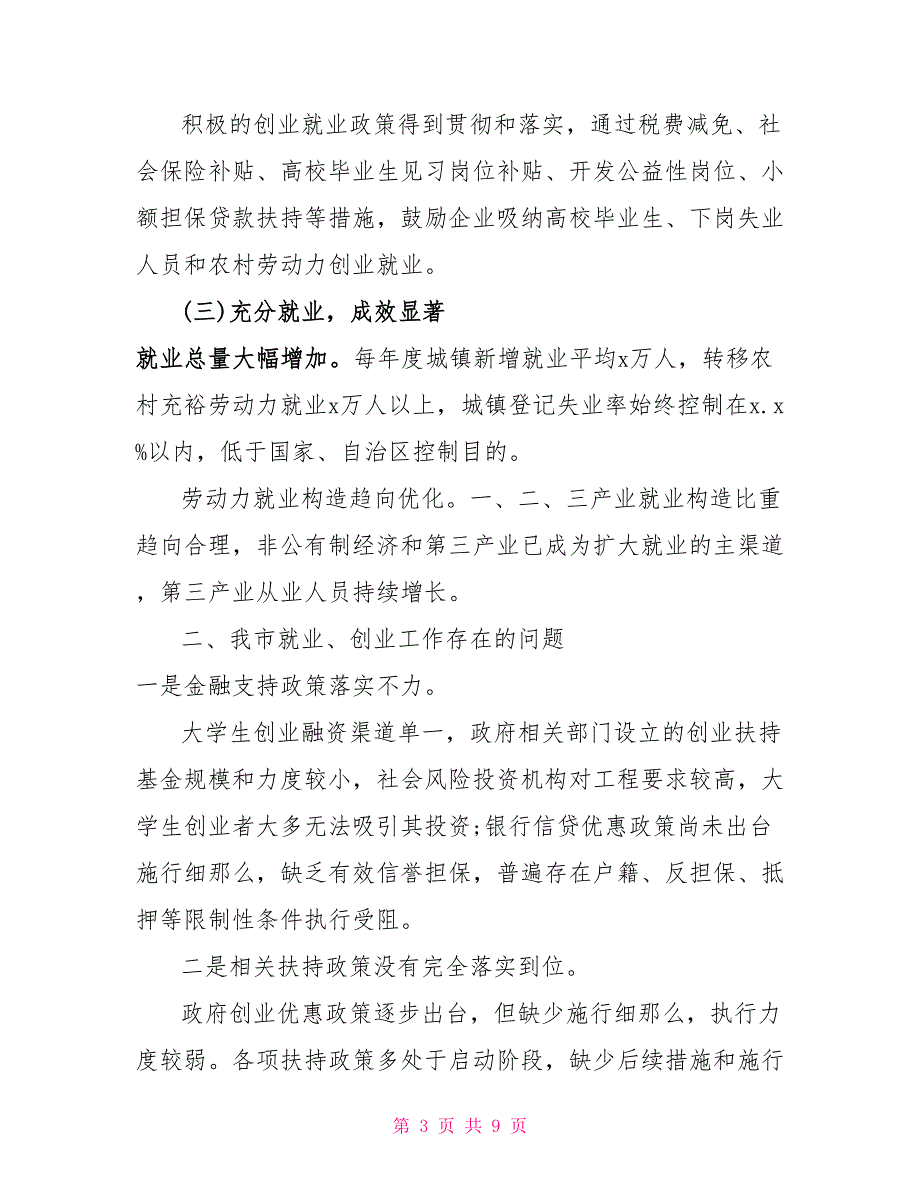 积极的创业就业政策得到贯彻和落实，通过税费减免、社
会保险补贴、高校毕业生见习岗位补贴、开发公益性岗位、小
额担保贷款扶持等措施，鼓励企业吸纳高校毕业生、下岗失业
人员和农村劳动力创业就业。
(三)充分就业，成效显著
就业总量大幅增加。每年度城镇新增就业平均x万人，转移农
村充裕劳动力就业x万人以上，城镇登记失业率始终控制在x.x
%以内，低于国家、自治区控制目的。
劳动力就业构造趋向优化。一、二、三产业就业构造比重
趋向合理，非公有制经济和第三产业已成为扩大就业的主渠道
，第三产业从业人员持续增长。
二、我市就业、创业工作存在的问题
一是金融支持政策落实不力。
大学生创业融资渠道单一，政府相关部门设立的创业扶持
基金规模和力度较小，社会风险投资机构对工程要求较高，大
学生创业者大多无法吸引其投资;银行信贷优惠政策尚未出台
施行细那么，缺乏有效信誉担保，普遍存在户籍、反担保、抵
押等限制性条件执行受阻。
二是相关扶持政策没有完全落实到位。
政府创业优惠政策逐步出台，但缺少施行细那么，执行力
度较弱。各项扶持政策多处于启动阶段，缺少后续措施和施行
第 3 页 共 9 页